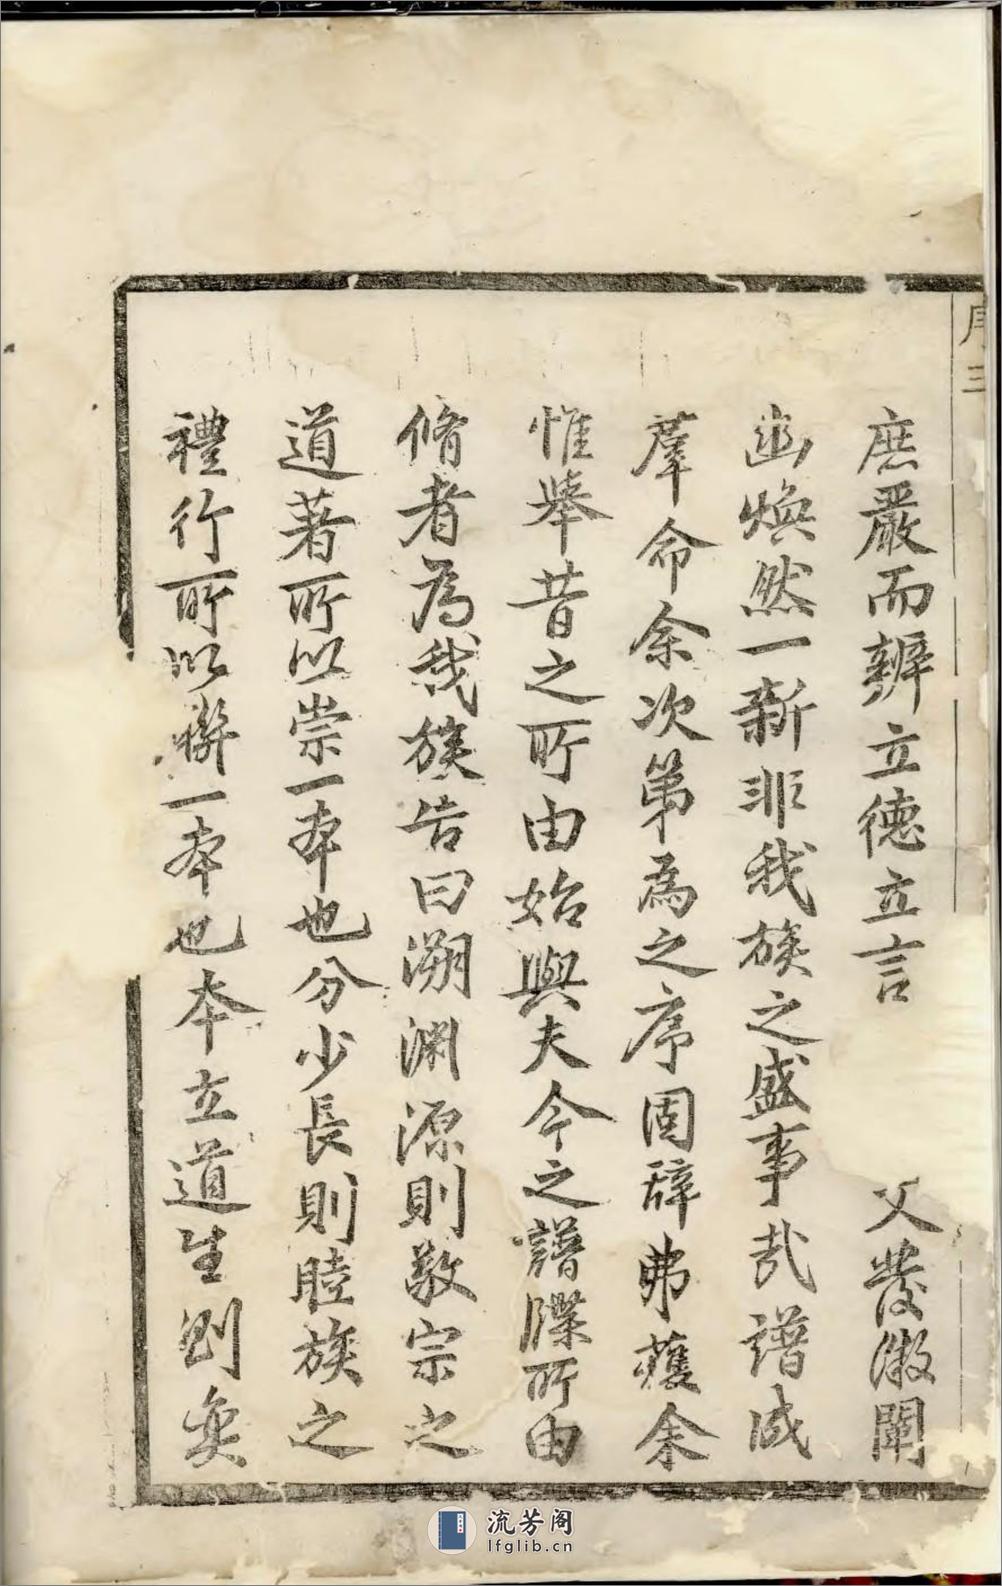 序三
庶嚴而辨立德立言 父發微闡
幽煥然一新非我族之盛事哉譜成
羣命余次第為之序固辭弗獲余
惟舉昔之所由始與夫今之譜牒所由
脩者為我族告曰溯淵源則敬宗之
道著所以崇一本也分少長則睦族之
禮行所以聯一本也本立道生則奕
流芳阁
lfglib.cn